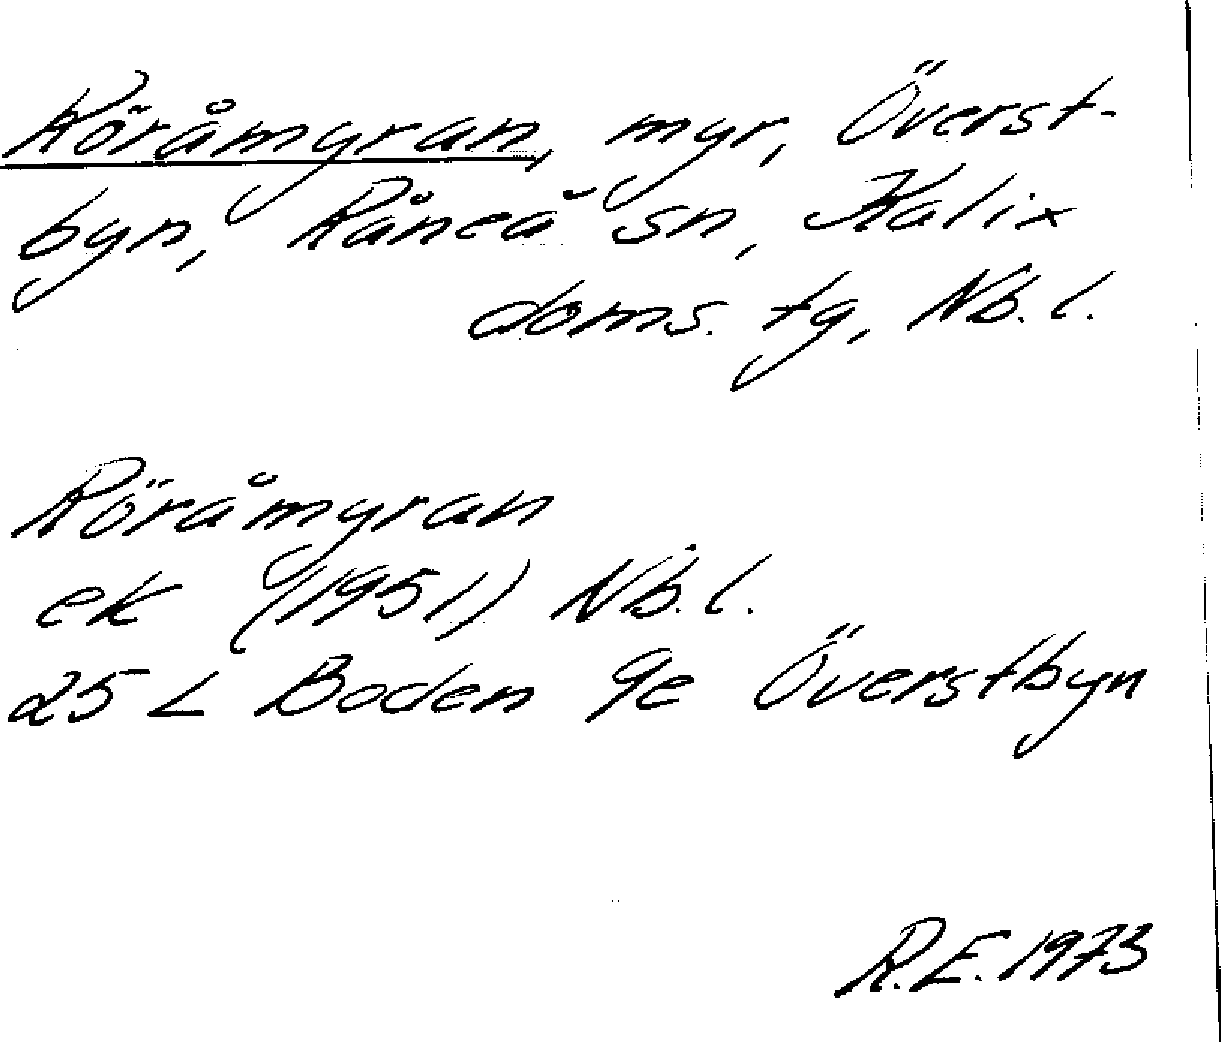 Röråmyran, myr, Överst-
byn, Råneå sn, Kalix
doms. tg, Nb. l.
Röråmyran
ek (1951) Nb. l.
25 L Boden 9e Överstbyn
R.E. 1973